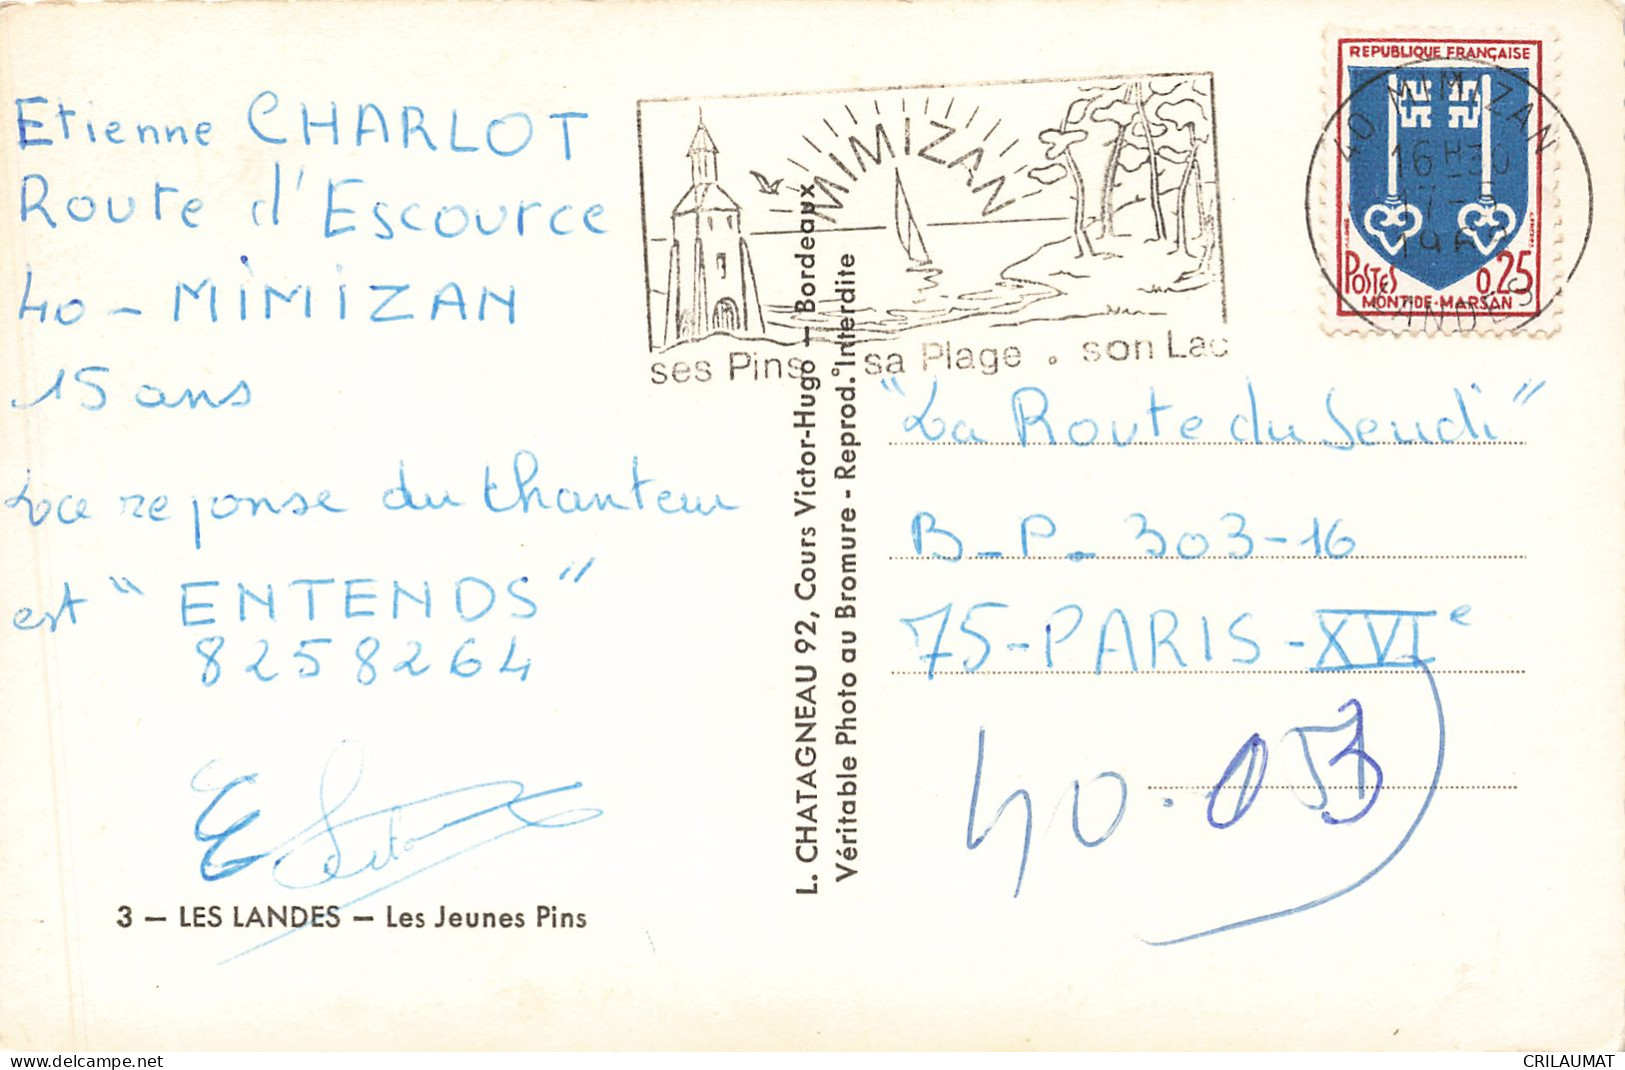 Etienne CHARLOT
Route d'Escource
40 - MIMIZAN
15 ans
La reponse du chanteur
est "ENTENDS"
8258264
3 — LES LANDES — Les Jeunes Pins
MIMIZAN
ses Pins sa Plage . son Lac
L. CHATAGNEAU 92, Cours Victor-Hugo — Bordeaux
Véritable Photo au Bromure - Reprod. Interdite
REPUBLIQUE FRANÇAISE
POSTES 0,25
MONT-DE-MARSAN
40 MIMIZAN
16 H 30
17 - 5
LANDES
"La Route du Jeudi"
B-P- 303-16
75-PARIS-XVIe
40.053
delcampe.net
CRILAUMAT